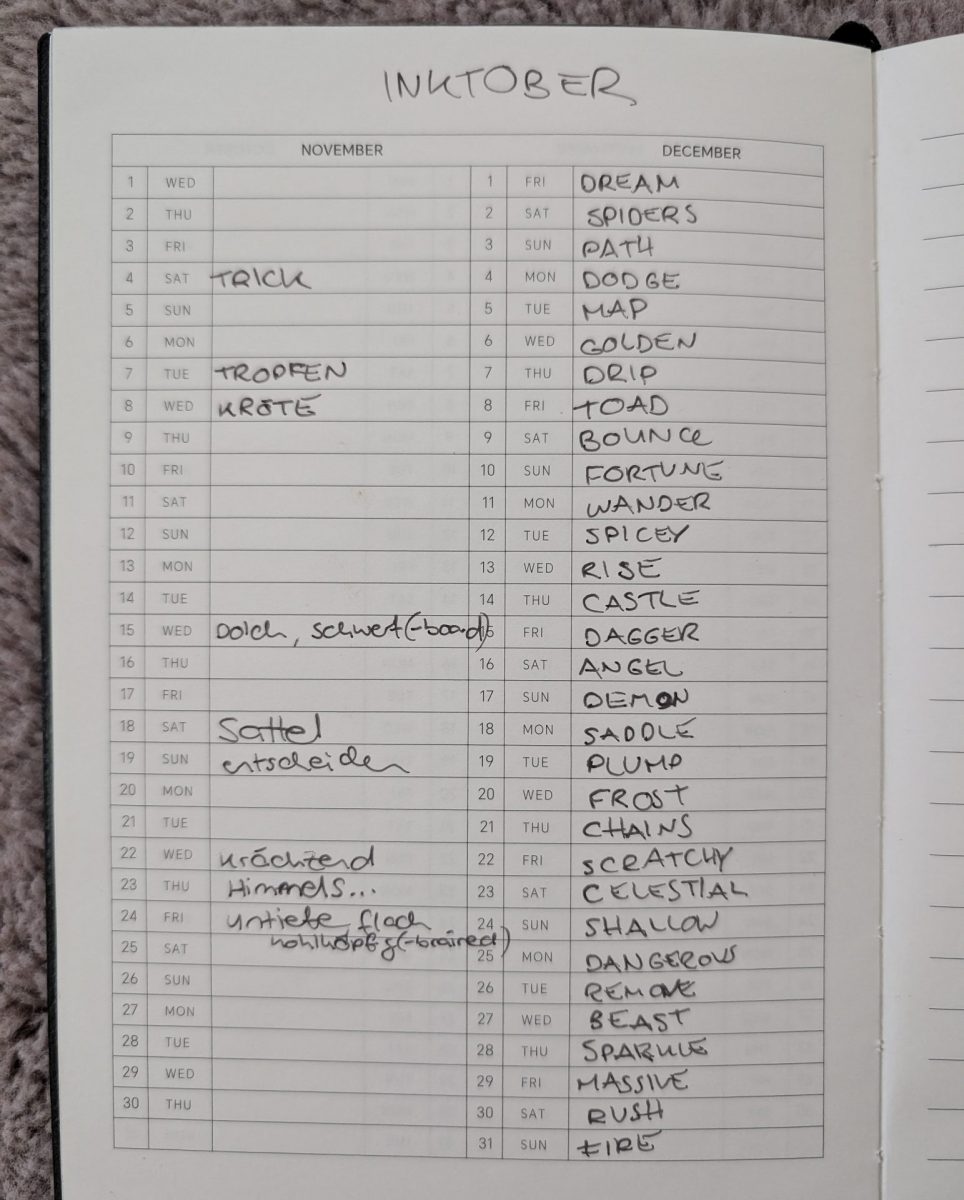 INKTOBER
NOVEMBER DECEMBER
1 WED 1 FRI DREAM
2 THU 2 SAT SPIDERS
3 FRI 3 SUN PATH
4 SAT TRICK 4 MON DODGE
5 SUN 5 TUE MAP
6 MON 6 WED GOLDEN
7 TUE TROPFEN 7 THU DRIP
8 WED KRÖTE 8 FRI TOAD
9 THU 9 SAT BOUNCE
10 FRI 10 SUN FORTUNE
11 SAT 11 MON WANDER
12 SUN 12 TUE SPICEY
13 MON 13 WED RISE
14 TUE 14 THU CASTLE
15 WED Dolch, Schwert(-board) 15 FRI DAGGER
16 THU 16 SAT ANGEL
17 FRI 17 SUN DEMON
18 SAT Sattel 18 MON SADDLE
19 SUN entscheiden 19 TUE PLUMP
20 MON 20 WED FROST
21 TUE 21 THU CHAINS
22 WED krächzend 22 FRI SCRATCHY
23 THU Himmels... 23 SAT CELESTIAL
24 FRI untiefe, flach 24 SUN SHALLOW
25 SAT hohlköpfg(-brained) 25 MON DANGEROUS
26 SUN 26 TUE REMOVE
27 MON 27 WED BEAST
28 TUE 28 THU SPARKLE
29 WED 29 FRI MASSIVE
30 THU 30 SAT RUSH
31 SUN FIRE